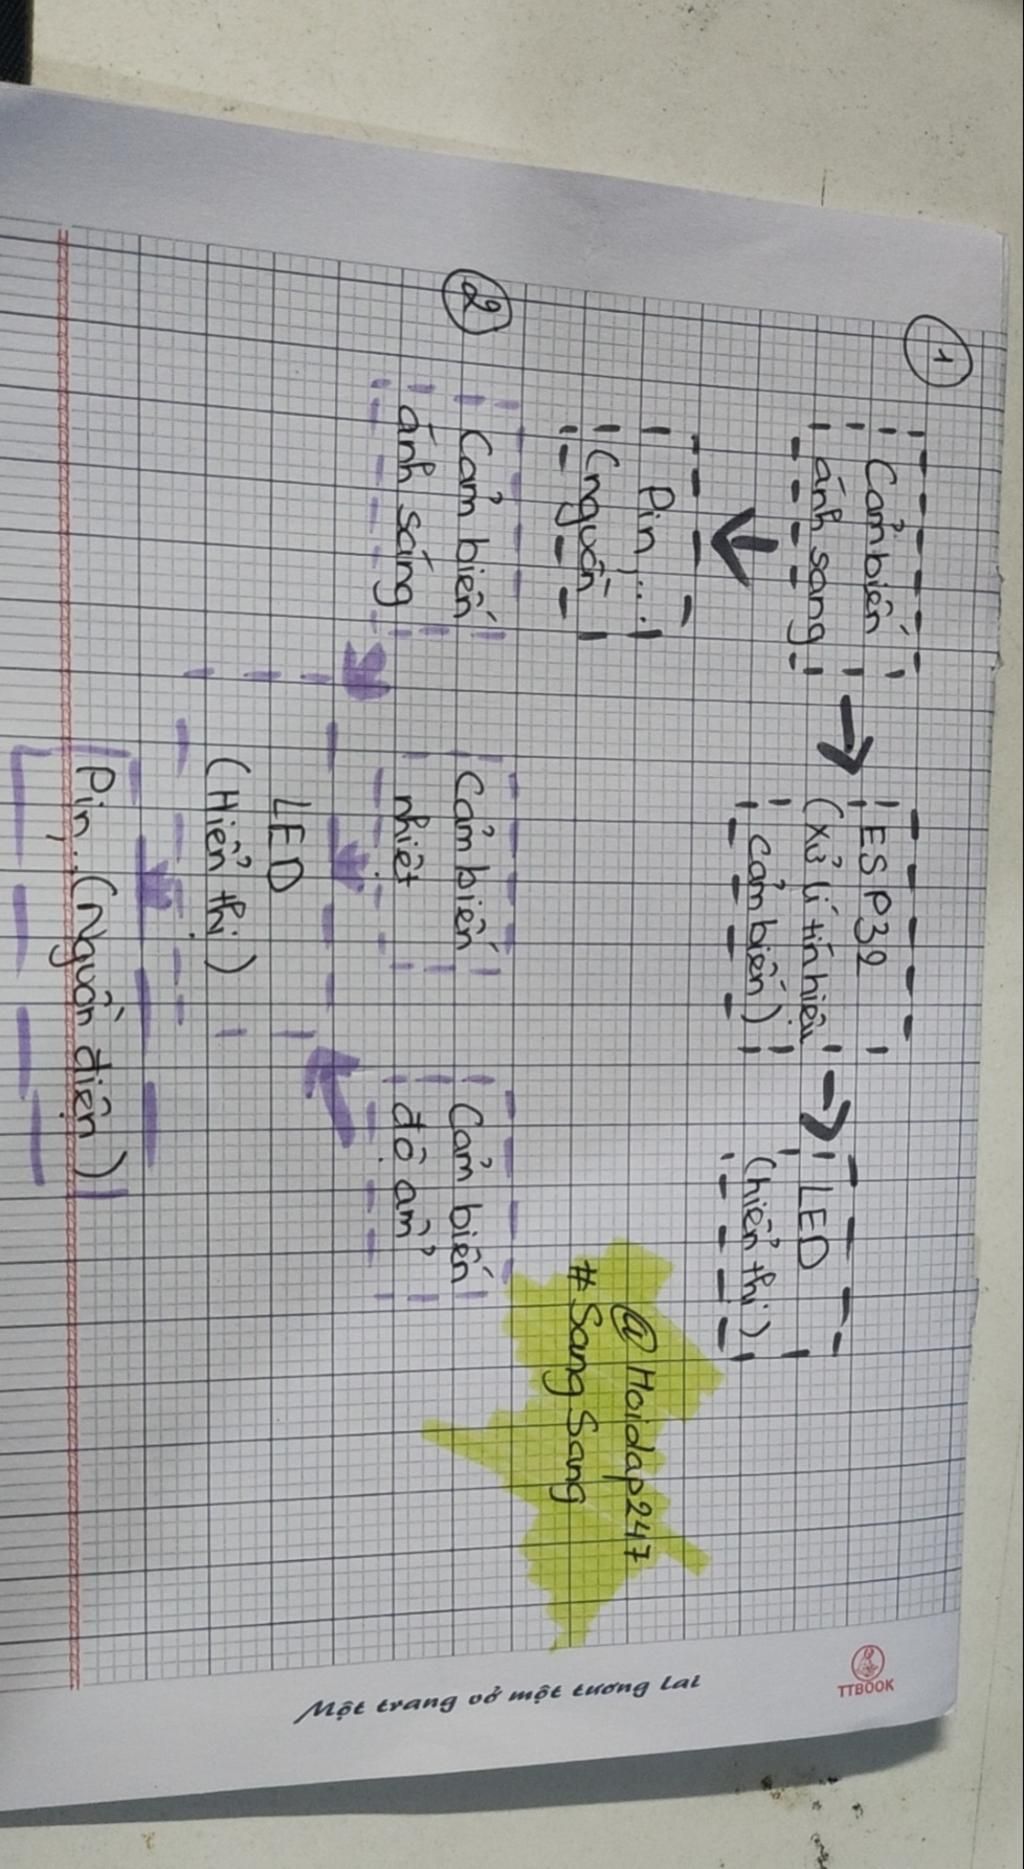 1
Cảm biến
ánh sang
ESP32
(xử lí tín hiệu
cảm biến)
LED
(hiển thị)
Pin,...
(nguồn
@Hoidap247
#SangSang
2
Cảm biến
ánh sáng
Cảm biến
nhiệt
Cảm biến
độ ẩm
LED
(Hiển thị)
Pin,..(Nguồn điện)
TTBOOK
Một trang vở một tương lai